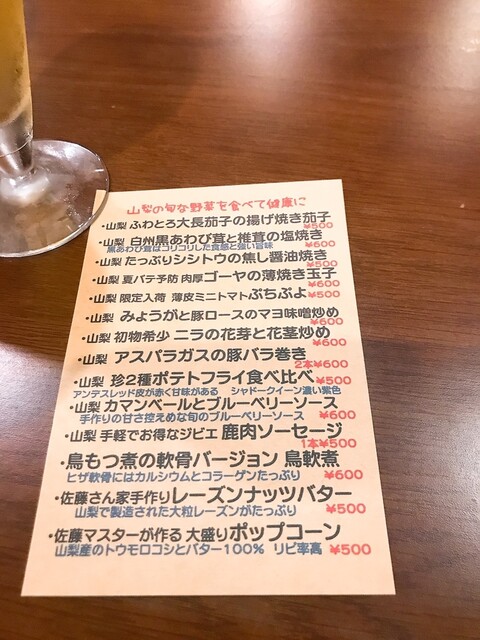 山梨の旬な野菜を食べて健康に
・山梨 ふわとろ大長茄子の揚げ焼き茄子
¥500
・山梨 白州黒あわび茸と椎茸の塩焼き
黒あわび茸はコリコリした食感と強い旨味 ¥600
・山梨 たっぷりシシトウの焦し醤油焼き
¥500
・山梨 夏バテ予防 肉厚ゴーヤの薄焼き玉子
¥600
・山梨 限定入荷 薄皮ミニトマトぷちぷよ ¥500
・山梨 みょうがと豚ロースのマヨ味噌炒め
¥600
・山梨 初物希少 ニラの花芽と花茎炒め
¥600
・山梨 アスパラガスの豚バラ巻き
2本¥600
・山梨 珍2種ポテトフライ食べ比べ ¥500
アンデスレッド皮が赤く甘味がある シャドークイーン濃い紫色
・山梨 カマンベールとブルーベリーソース
手作りの甘さ控えめな旬のブルーベリーソース ¥600
・山梨 手軽でお得なジビエ 鹿肉ソーセージ
1本¥500
・鳥もつ煮の軟骨バージョン 鳥軟煮
ヒザ軟骨にはカルシウムとコラーゲンたっぷり ¥600
・佐藤さん家手作りレーズンナッツバター
山梨で製造された大粒レーズンがたっぷり ¥500
・佐藤マスターが作る 大盛りポップコーン
山梨産のトウモロコシとバター100% リピ率高 ¥500